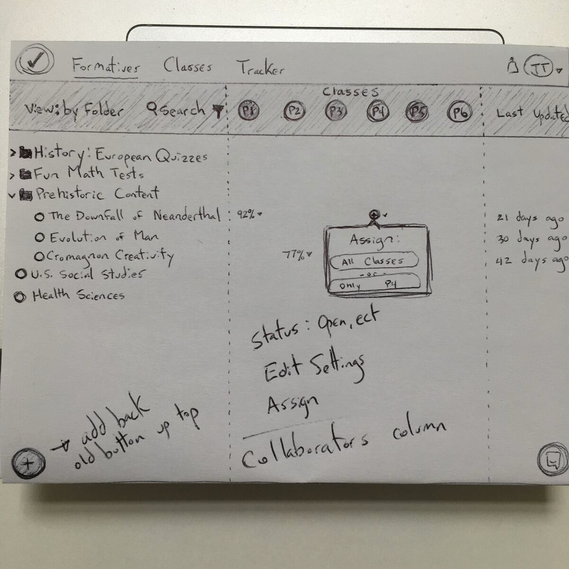 Formatives Classes Tracker JT
Classes
View: by Folder Search P1 P2 P3 P4 P5 P6 Last Updated
History: European Quizzes
Fun Math Tests
Prehistoric Content
The Downfall of Neanderthal 92% 21 days ago
Evolution of Man 30 days ago
Cromagnon Creativity 77% 42 days ago
U.S. Social Studies
Health Sciences
Assign:
All Classes
-or-
Only P4
Status: Open, ect
Edit Settings
Assign
Collaborators column
add back
old button up top